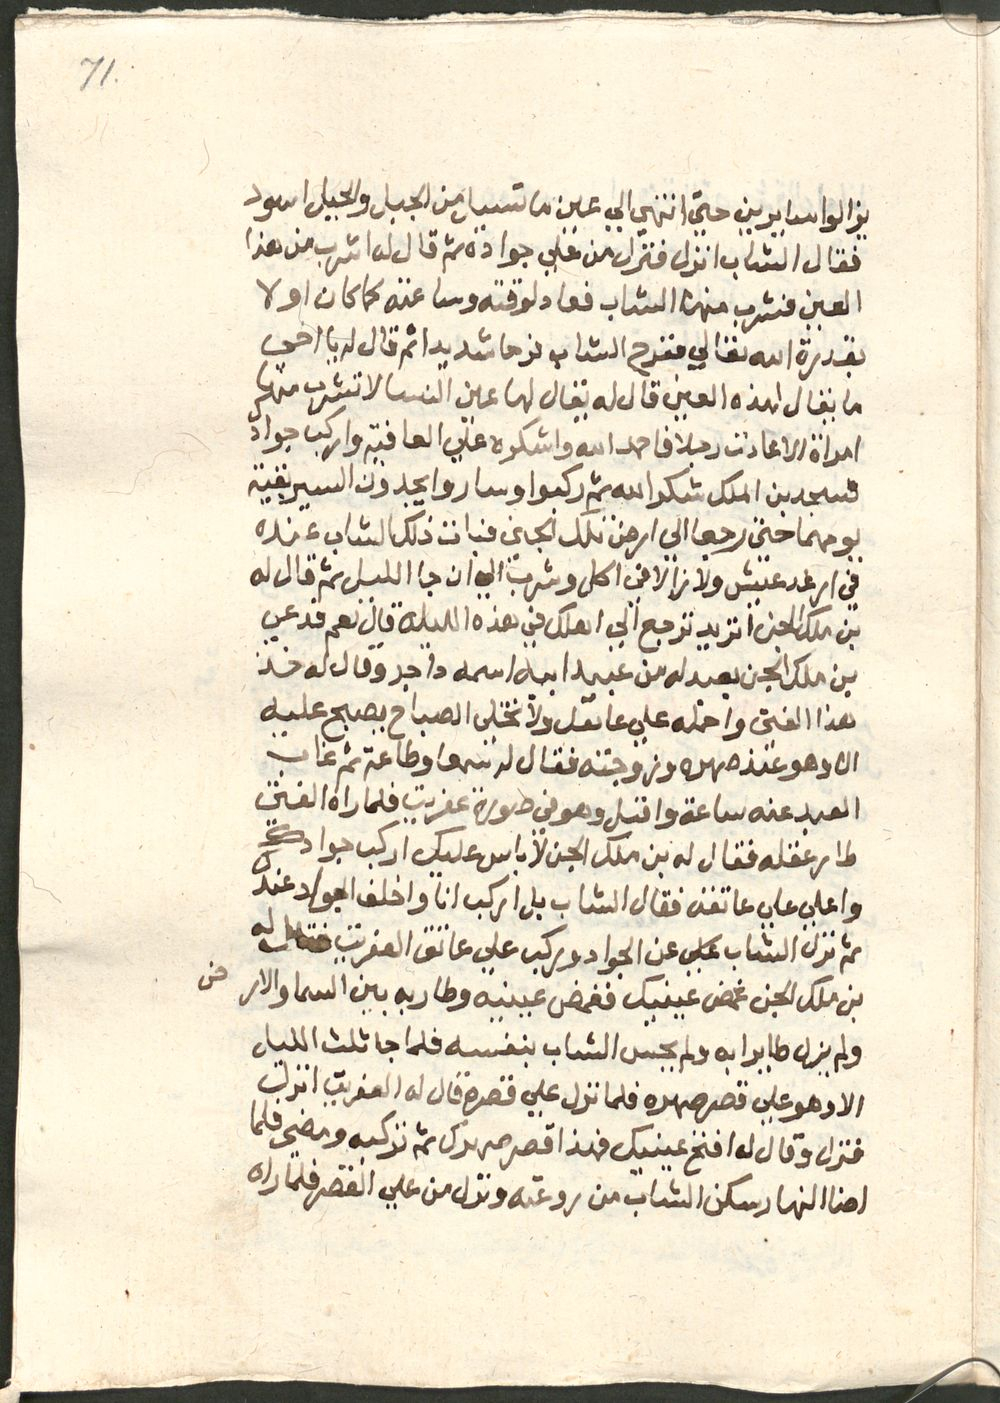 71.
يزالوا سايرين حتي انتهي الي عين ما تسيل من الجبل والجبل اسود
فقال الشاب انزل فنزل من علي جواده ثم قال له اشرب من هذا
العين فشرب منها الشاب فعاد لوقته وساعته كما كان اولا
بقدرة الله تعالي ففرح الشاب فرحا شديدا ثم قال له يا اخي
ما يقال لهذه العين قال له يقال لها عين النسا لا تشرب منها
امراة الا عادت رجلا فاحمد الله واشكره علي العافية واركب جوادك
فسجد بن الملك شكرا لله ثم ركبوا وساروا يجدون السير بقية
يومهما حتي رجعا الي ارض تلك الجني فبات ذلك الشاب عنده
في ارغد عيش ولا زالا في اكل وشرب الي ان جا الليل ثم قال له
بن ملك الجن اتريد ترجع الي اهلك في هذه الليلة قال نعم فدعي
بن ملك الجن بعبد له من عبيد ابيه اسمه داجر وقال له خذ
هذا الفتي واحمله علي عاتقك ولا تخلي الصباح يصبح عليه
الا وهو عند صهره وزوجته فقال له سمعا وطاعة ثم غاب
العبد عنه ساعة واقبل وهو في صورة عفريت فلما راه الفتي
طار عقله فقال له بن ملك الجن لا باس عليك اركب جوادك
واعلي علي عاتقه فقال الشاب بل اركب انا واخلف الجواد عندك
ثم نزل الشاب علي عن الجواد وركب علي عاتق العفريت فقال له
بن ملك الجن غمض عينيك فغمض عينيه وطار به بين السما والارض
ولم يزل طايرا به ولم يحس الشاب بنفسه فلما جا ثلث الليل
الا وهو علي قصر صهره فلما نزل علي قصره قال له العفريت انزل
فنزل وقال له افتح عينيك فهذا قصر صهرك ثم تركبه ومضي فلما
اضا النهار سكن الشاب من روعته ونزل من علي القصر فلما راه